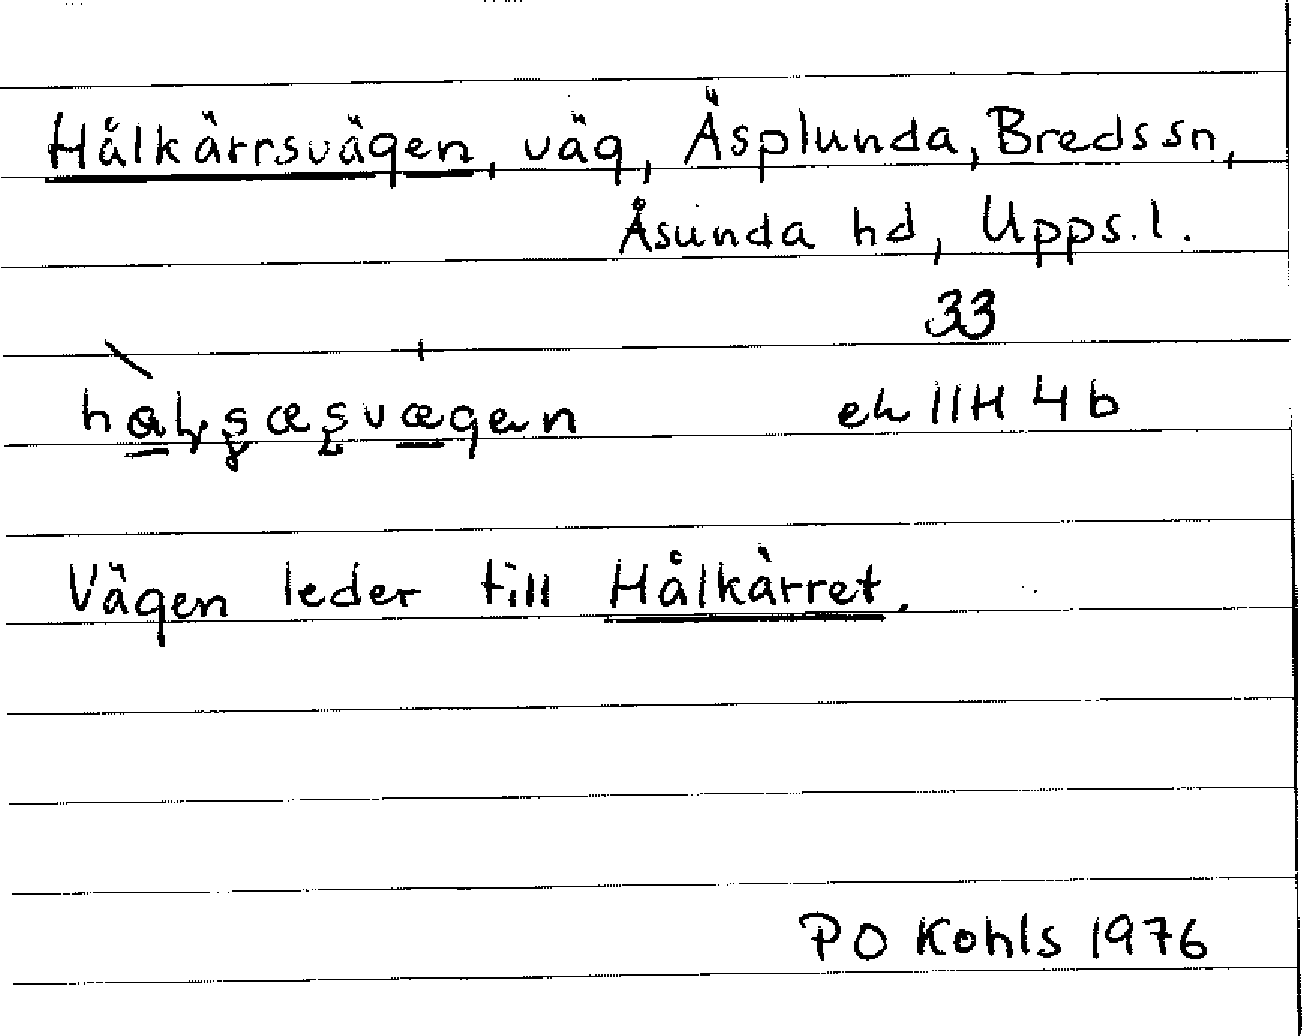 Hålkärrsvägen, väg, Äsplunda, Breds sn,
Åsunda hd, Upps.l.
33
ek 11H 4b
Vägen leder till Hålkärret.
PO Kohls 1976